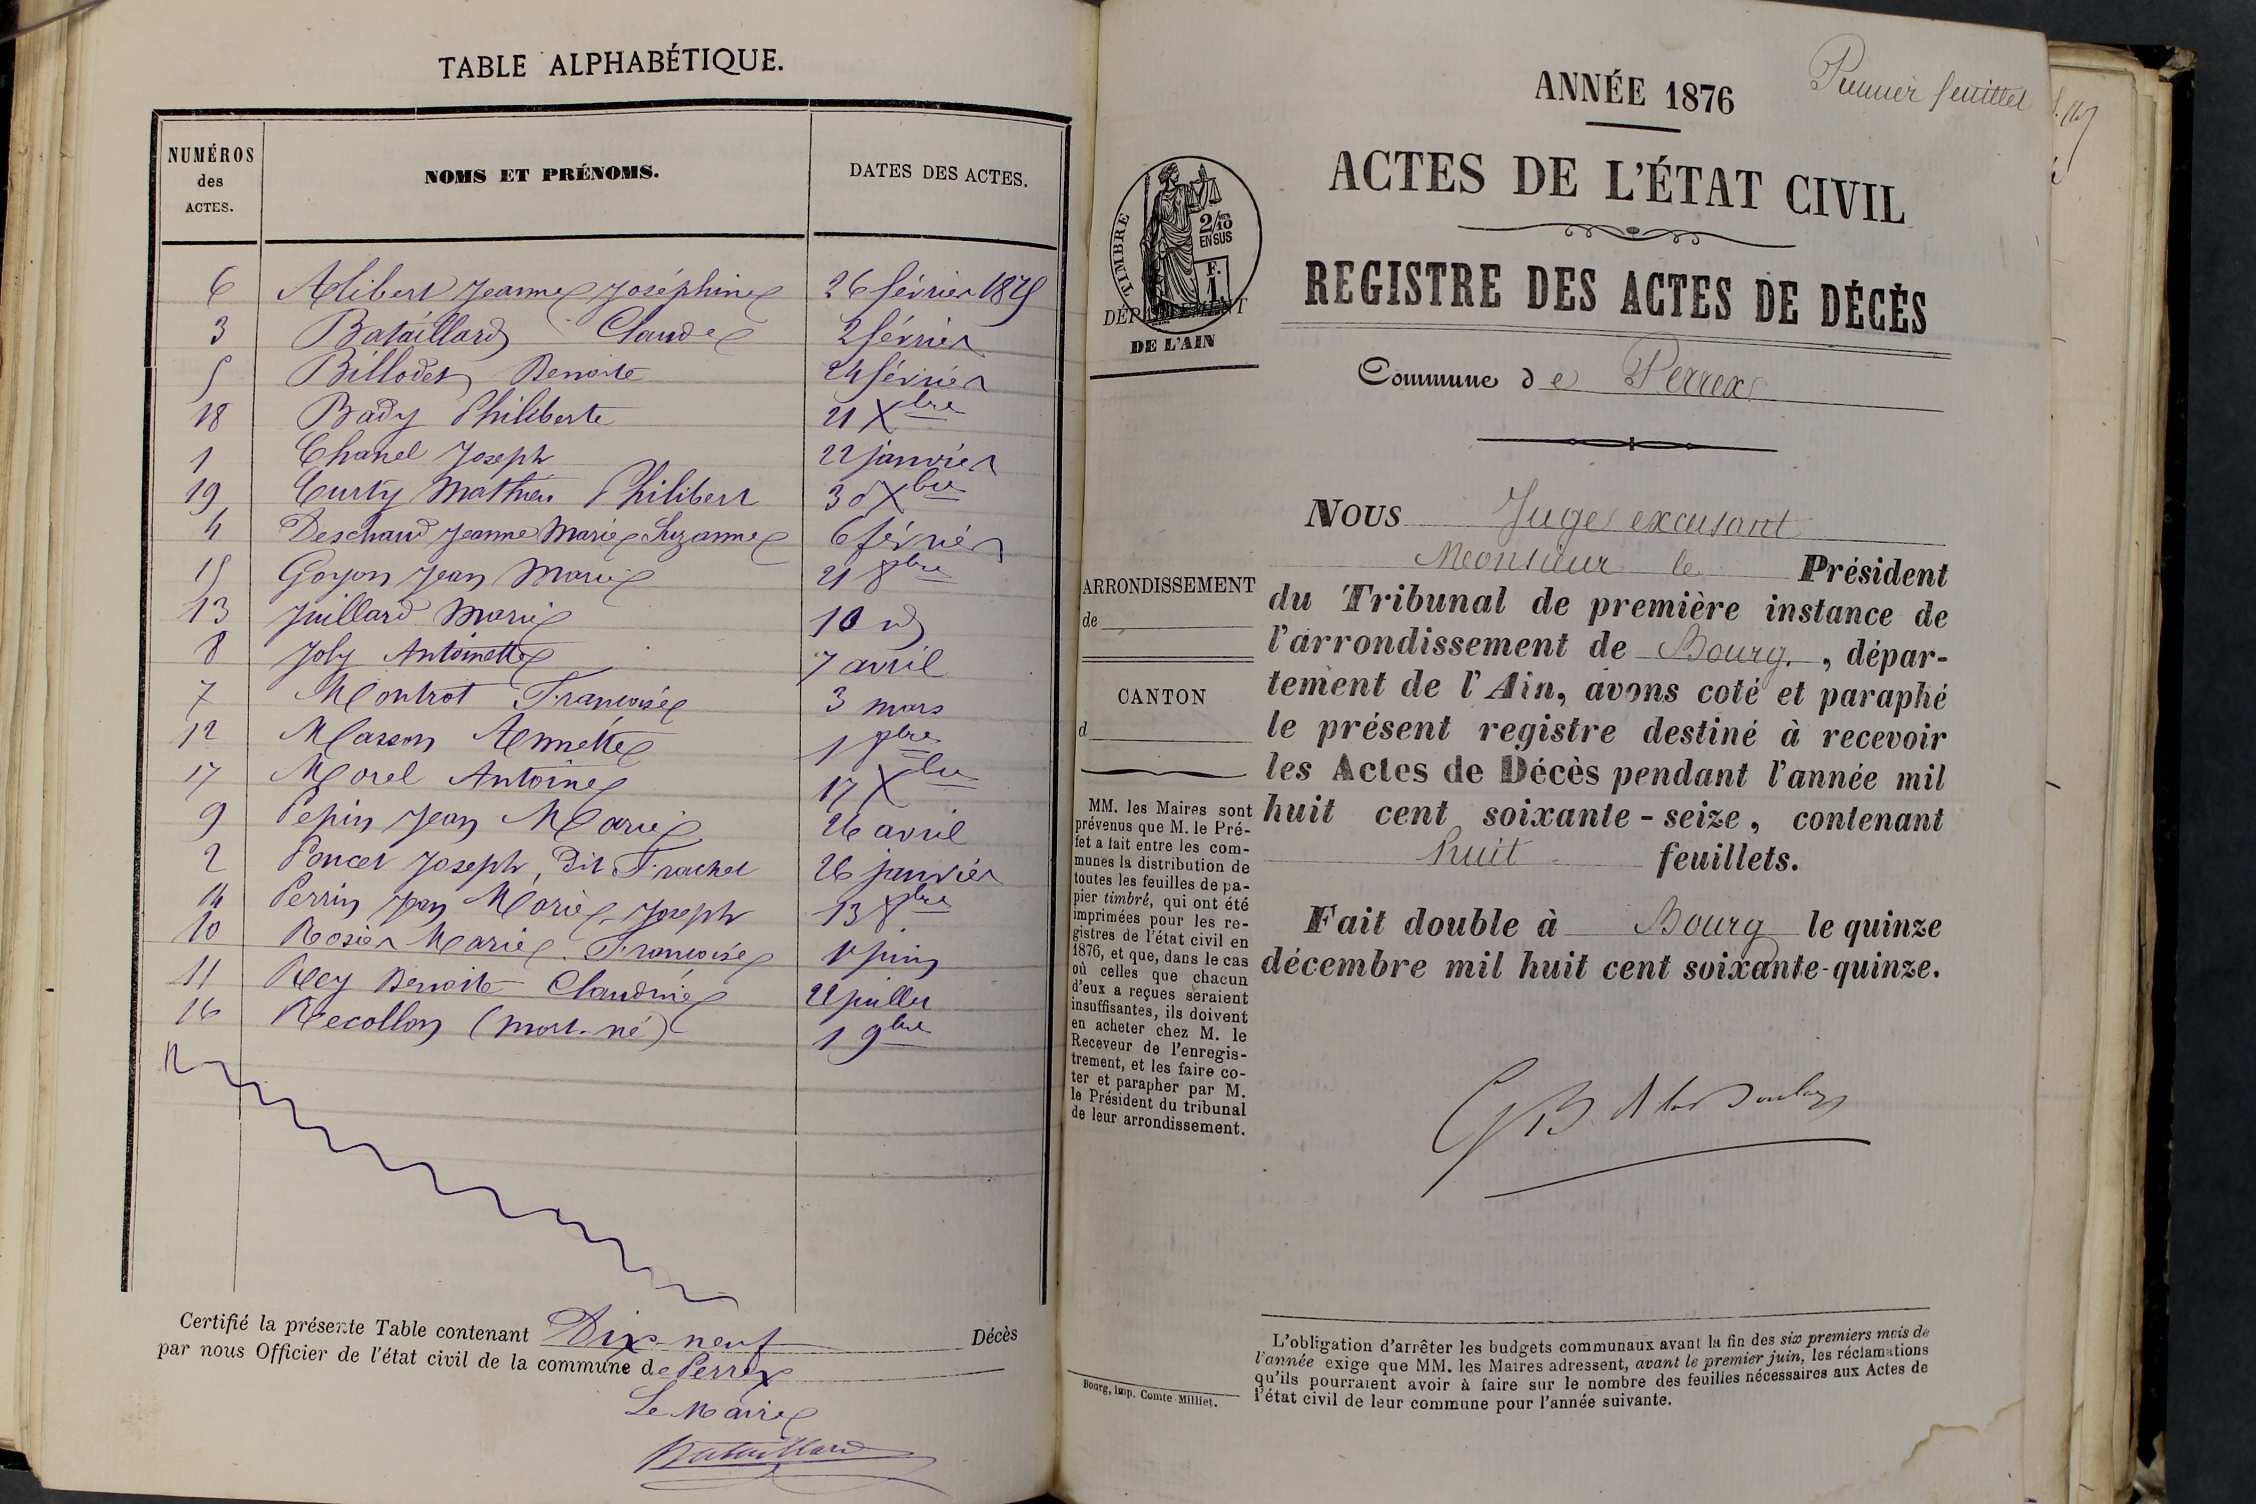 TABLE ALPHABÉTIQUE.
NUMÉROS des ACTES. NOMS ET PRÉNOMS. DATES DES ACTES.
6 Alibert Jeanne Joséphine 26 février 1875
3 Bataillard Claude 2 février
5 Billoder Benoite 24 février
18 Bady Philiberte 21 Xbre
1 Chanel Joseph 22 janvier
19 Curty Mathieu Philibert 30 Xbre
4 Deschaud Jeanne Marie Suzanne 6 février
15 Goyon Jean Marie 21 8bre
13 Juillard Marie 10 d
8 Joly Antoinette 7 avril
7 Montrot Françoise 3 mars
12 Masson Annette 1 8bre
17 Morel Antoine 17 Xbre
9 Pepin Jean Marie 26 avril
2 Poncet Joseph, dit Frachet 26 janvier
14 Perrin Jean Marie Joseph 13 8bre
10 Rosier Marie Françoise juin
11 Rey Benoite Claudine juillet
16 Recollon (mort-né) 1 9bre
Certifié la présente Table contenant Dix-neuf Décès
par nous Officier de l'état civil de la commune de Perrex
Le Maire
Bataillard
Premier feuillet
ANNÉE 1876
ACTES DE L'ÉTAT CIVIL
REGISTRE DES ACTES DE DÉCÈS
TIMBRE
2/10 EN SUS
F. 1
DÉPARTEMENT
DE L'AIN
Commune de Perrex
NOUS Juge excusant
Monsieur le Président
du Tribunal de première instance de
l'arrondissement de Bourg, dépar-
tement de l'Ain, avons coté et paraphé
le présent registre destiné à recevoir
les Actes de Décès pendant l'année mil
huit cent soixante-seize, contenant
huit feuillets.
Fait double à Bourg le quinze
décembre mil huit cent soixante-quinze.
ARRONDISSEMENT
de
CANTON
d
MM. les Maires sont
prévenus que M. le Pré-
fet a fait entre les com-
munes la distribution de
toutes les feuilles de pa-
pier timbré, qui ont été
imprimées pour les re-
gistres de l'état civil en
1876, et que, dans le cas
où celles que chacun
d'eux a reçues seraient
insuffisantes, ils doivent
en acheter chez M. le
Receveur de l'enregis-
trement, et les faire co-
ter et parapher par M.
le Président du tribunal
de leur arrondissement.
Bourg, imp. Comte-Milliet.
L'obligation d'arrêter les budgets communaux avant la fin des six premiers mois de
l'année exige que MM. les Maires adressent, avant le premier juin, les réclamations
qu'ils pourraient avoir à faire sur le nombre des feuilles nécessaires aux Actes de
l'état civil de leur commune pour l'année suivante.